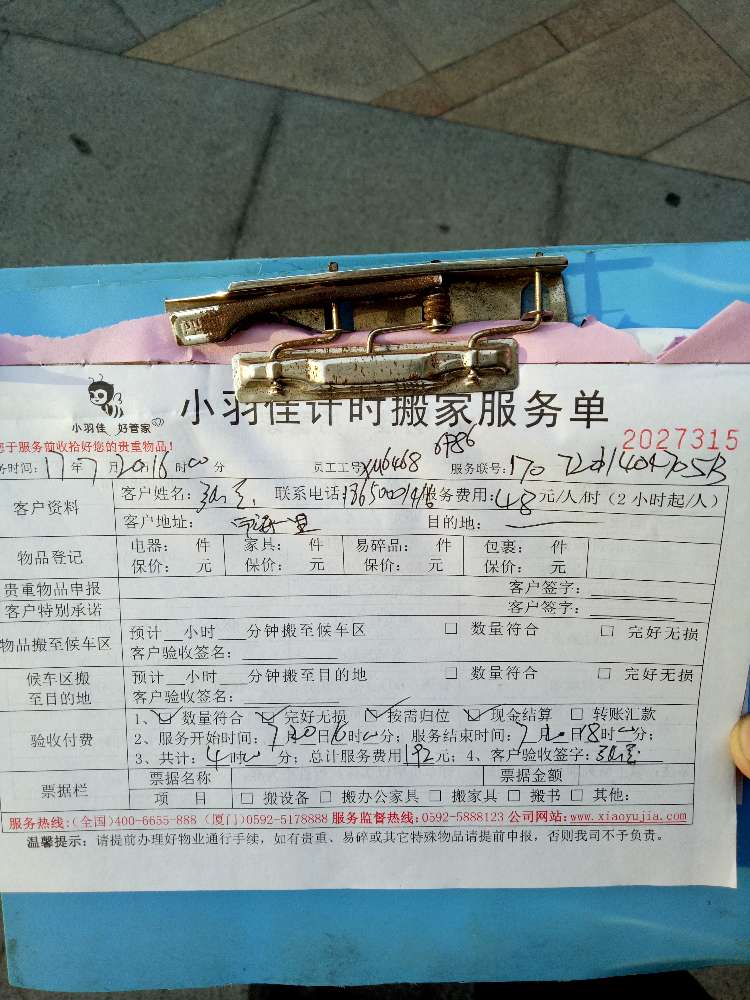 小羽佳 好管家
小羽佳计时搬家服务单
2027315
您于服务前收拾好您的贵重物品!
务时间: 17年7月20日16时00分 员工工号 XM6468 6986 服务联号: 170
客户资料
客户姓名: 联系电话: 服务费用: 48元/人/时 (2小时起/人)
客户地址: 一里 目的地:
物品登记
电器: 件 家具: 件 易碎品: 件 包裹: 件
保价: 元 保价: 元 保价: 元 保价: 元
贵重物品申报 客户签字:
客户特别承诺 客户签字:
物品搬至候车区
预计__小时___分钟搬至候车区 □ 数量符合 □ 完好无损
客户验收签名:
候车区搬至目的地
预计__小时___分钟搬至目的地 □ 数量符合 □ 完好无损
客户验收签名:
验收付费
1、☑ 数量符合 ☑ 完好无损 ☑ 按需归位 ☑ 现金结算 □ 转账汇款
2、服务开始时间: 7月20日16时00分; 服务结束时间: 7月20日18时00分;
3、共计: 4时00分; 总计服务费用192元; 4、客户验收签字:
票据栏
票据名称 票据金额
项 目 □ 搬设备 □ 搬办公家具 □ 搬家具 □ 搬书 □ 其他:
服务热线:(全国)400-6655-888 (厦门)0592-5178888 服务监督热线:0592-5888123 公司网站:www.xiaoyujia.com
温馨提示: 请提前办理好物业通行手续, 如有贵重、易碎或其它特殊物品请提前申报, 否则我司不予负责。